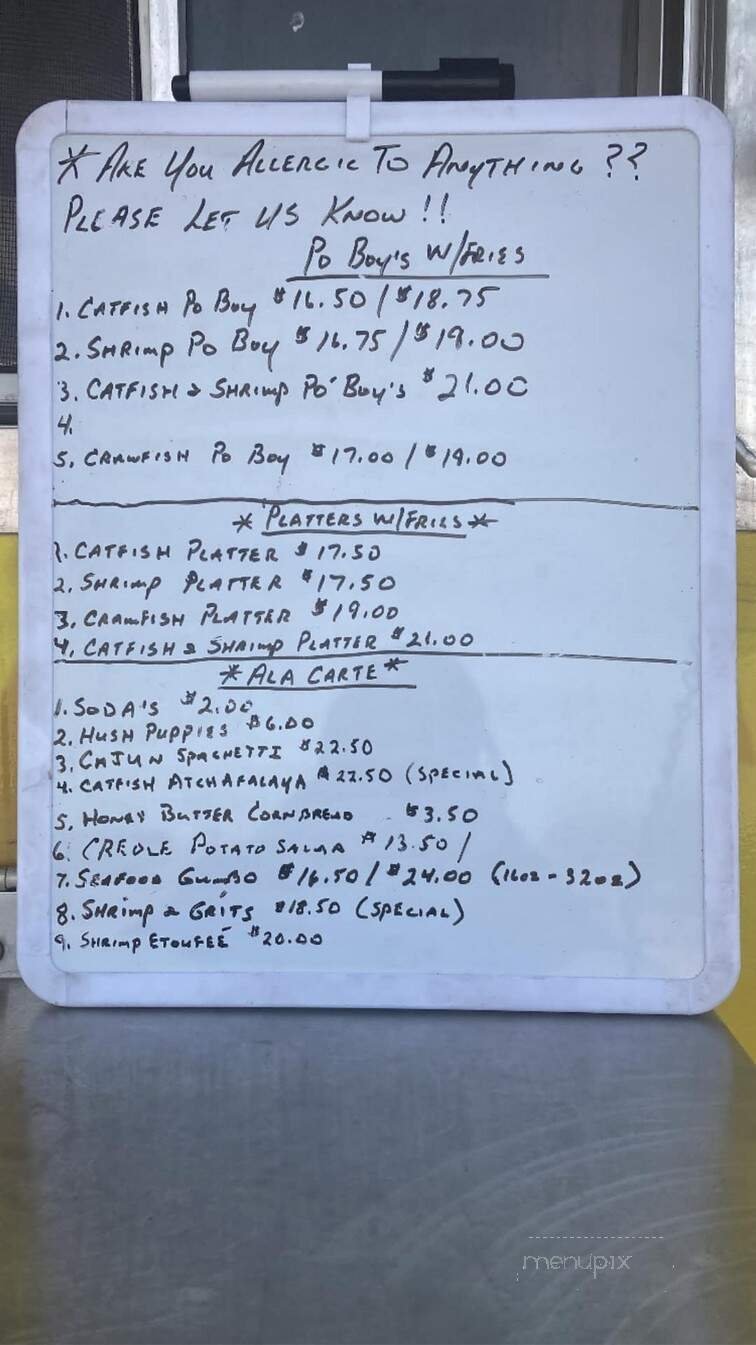 * ARE YOU ALLERGIC TO ANYTHING ??
PLEASE LET US KNOW !!
PO BOY'S W/FRIES
1. CATFISH PO BOY $16.50 / $18.75
2. SHRIMP PO BOY $16.75 / $19.00
3. CATFISH & SHRIMP PO' BOY'S $21.00
4.
5. CRAWFISH PO BOY $17.00 / $19.00
* PLATTERS W/FRIES *
1. CATFISH PLATTER $17.50
2. SHRIMP PLATTER $17.50
3. CRAWFISH PLATTER $19.00
4. CATFISH & SHRIMP PLATTER $21.00
* ALA CARTE *
1. SODA'S $2.00
2. HUSH PUPPIES $6.00
3. CAJUN SPAGHETTI $22.50
4. CATFISH ATCHAFALAYA $22.50 (SPECIAL)
5. HONEY BUTTER CORNBREAD $3.50
6. CREOLE POTATO SALAD $13.50 /
7. SEAFOOD GUMBO $16.50 / $24.00 (16oz - 32oz)
8. SHRIMP & GRITS $18.50 (SPECIAL)
9. SHRIMP ETOUFEÉ $20.00
menupix